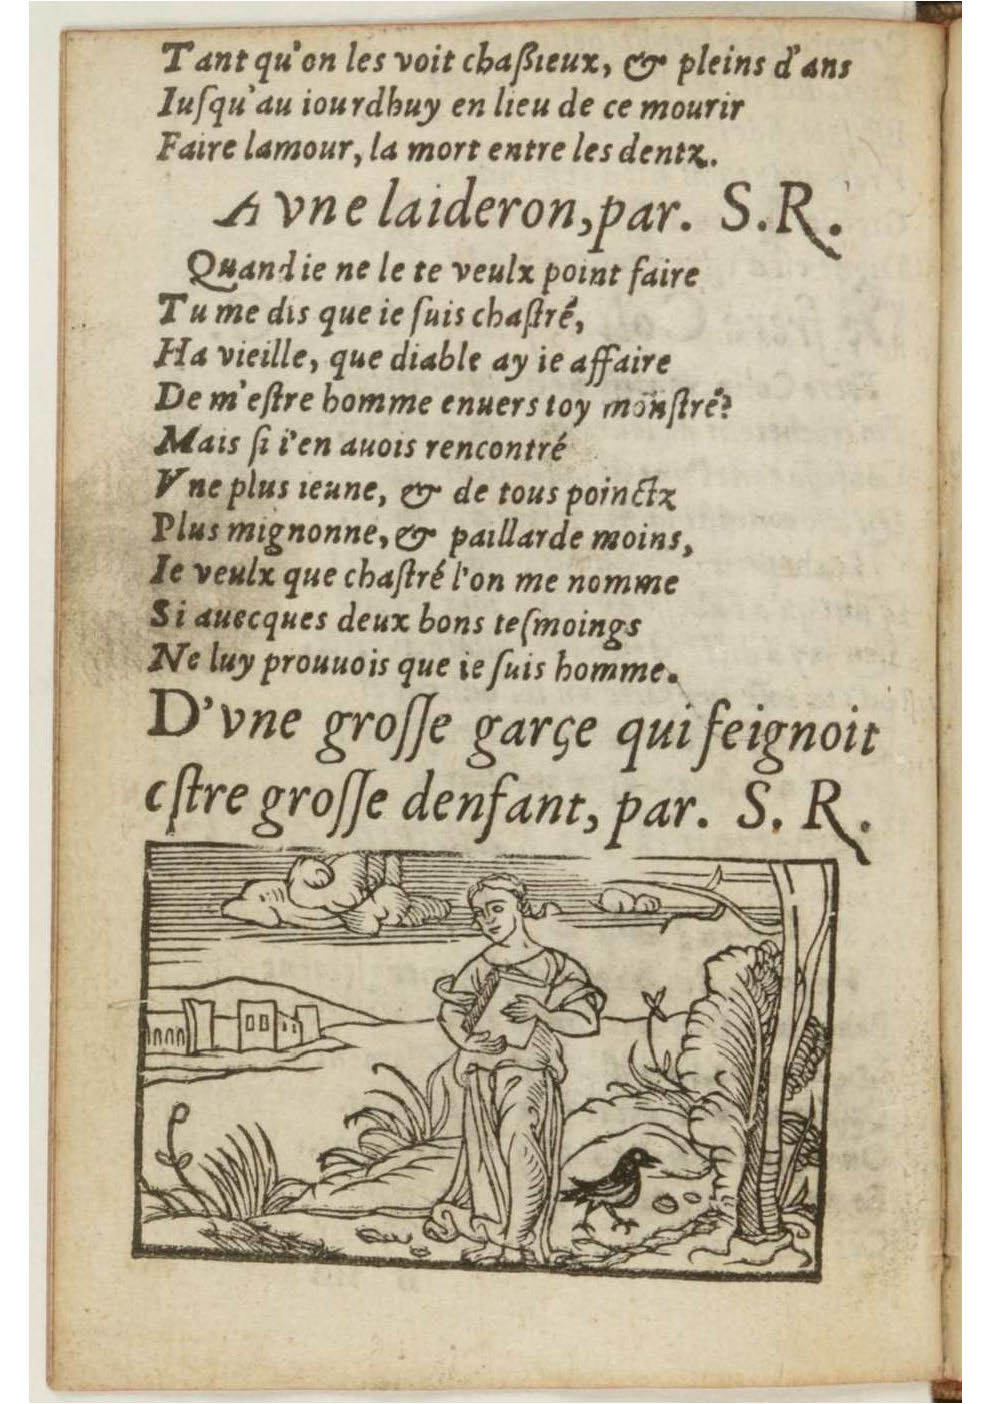 Tant qu'on les voit chaſsieux, & pleins d'ans
Iuſqu'au iourdhuy en lieu de ce mourir
Faire lamour, la mort entre les dentz.
A vne laideron, par. S. R.
Quand ie ne le te veulx point faire
Tu me dis que ie ſuis chaſtré,
Ha vieille, que diable ay ie affaire
De m'eſtre homme enuers toy monſtré?
Mais ſi i'en auois rencontré
Vne plus ieune, & de tous poinctz
Plus mignonne, & paillarde moins,
Ie veulx que chaſtré l'on me nomme
Si auecques deux bons teſmoings
Ne luy prouuois que ie ſuis homme.
D'vne groſſe garçe qui feignoit
eſtre groſſe denfant, par. S. R.